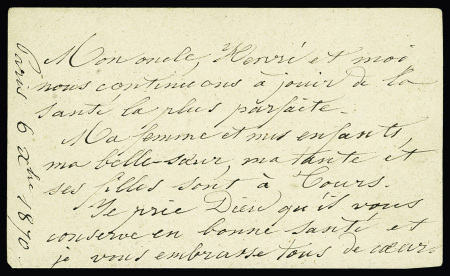 Paris 6 Xbre 1870
Mon oncle, Henri et moi
nous continuons à jouir de la
santé la plus parfaite.
Ma femme et mes enfants,
ma belle-sœur, ma tante et
ses filles sont à Tours.
Je prie Dieu qu'il vous
conserve en bonne santé et
je vous embrasse tous de cœur.